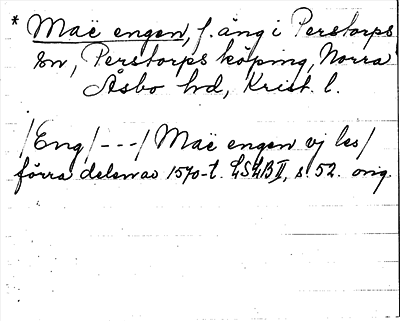 * Maë engen, f. äng i Perstorps
sn, Perstorps köping, Norra
Åsbo hd, Krist. l.
/Eng/---/Maë engen vj les/
förra delen av 1570-t. LSLB II, s 52. orig.